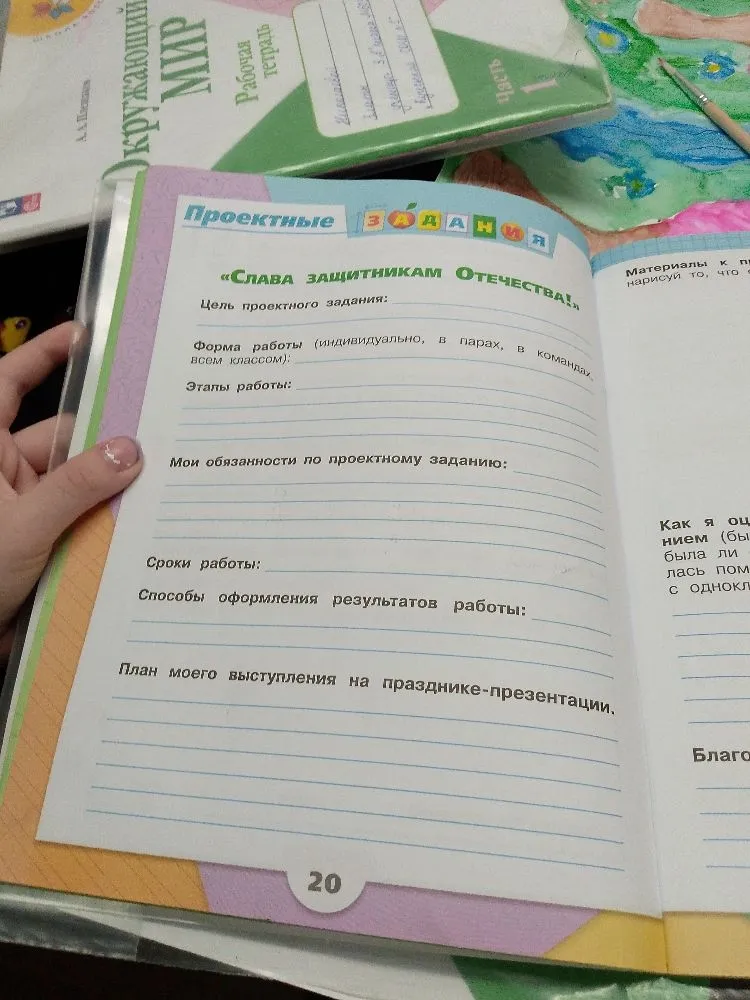 Окружающий
МИР
Рабочая
тетрадь
часть
1
Проектные ЗАДАНИЯ
«СЛАВА ЗАЩИТНИКАМ ОТЕЧЕСТВА!»
Цель проектного задания:
Форма работы (индивидуально, в парах, в командах,
всем классом):
Этапы работы:
Мои обязанности по проектному заданию:
Сроки работы:
Способы оформления результатов работы:
План моего выступления на празднике-презентации.
20
Материалы к
нарисуй то, что
Как я
была ли
с